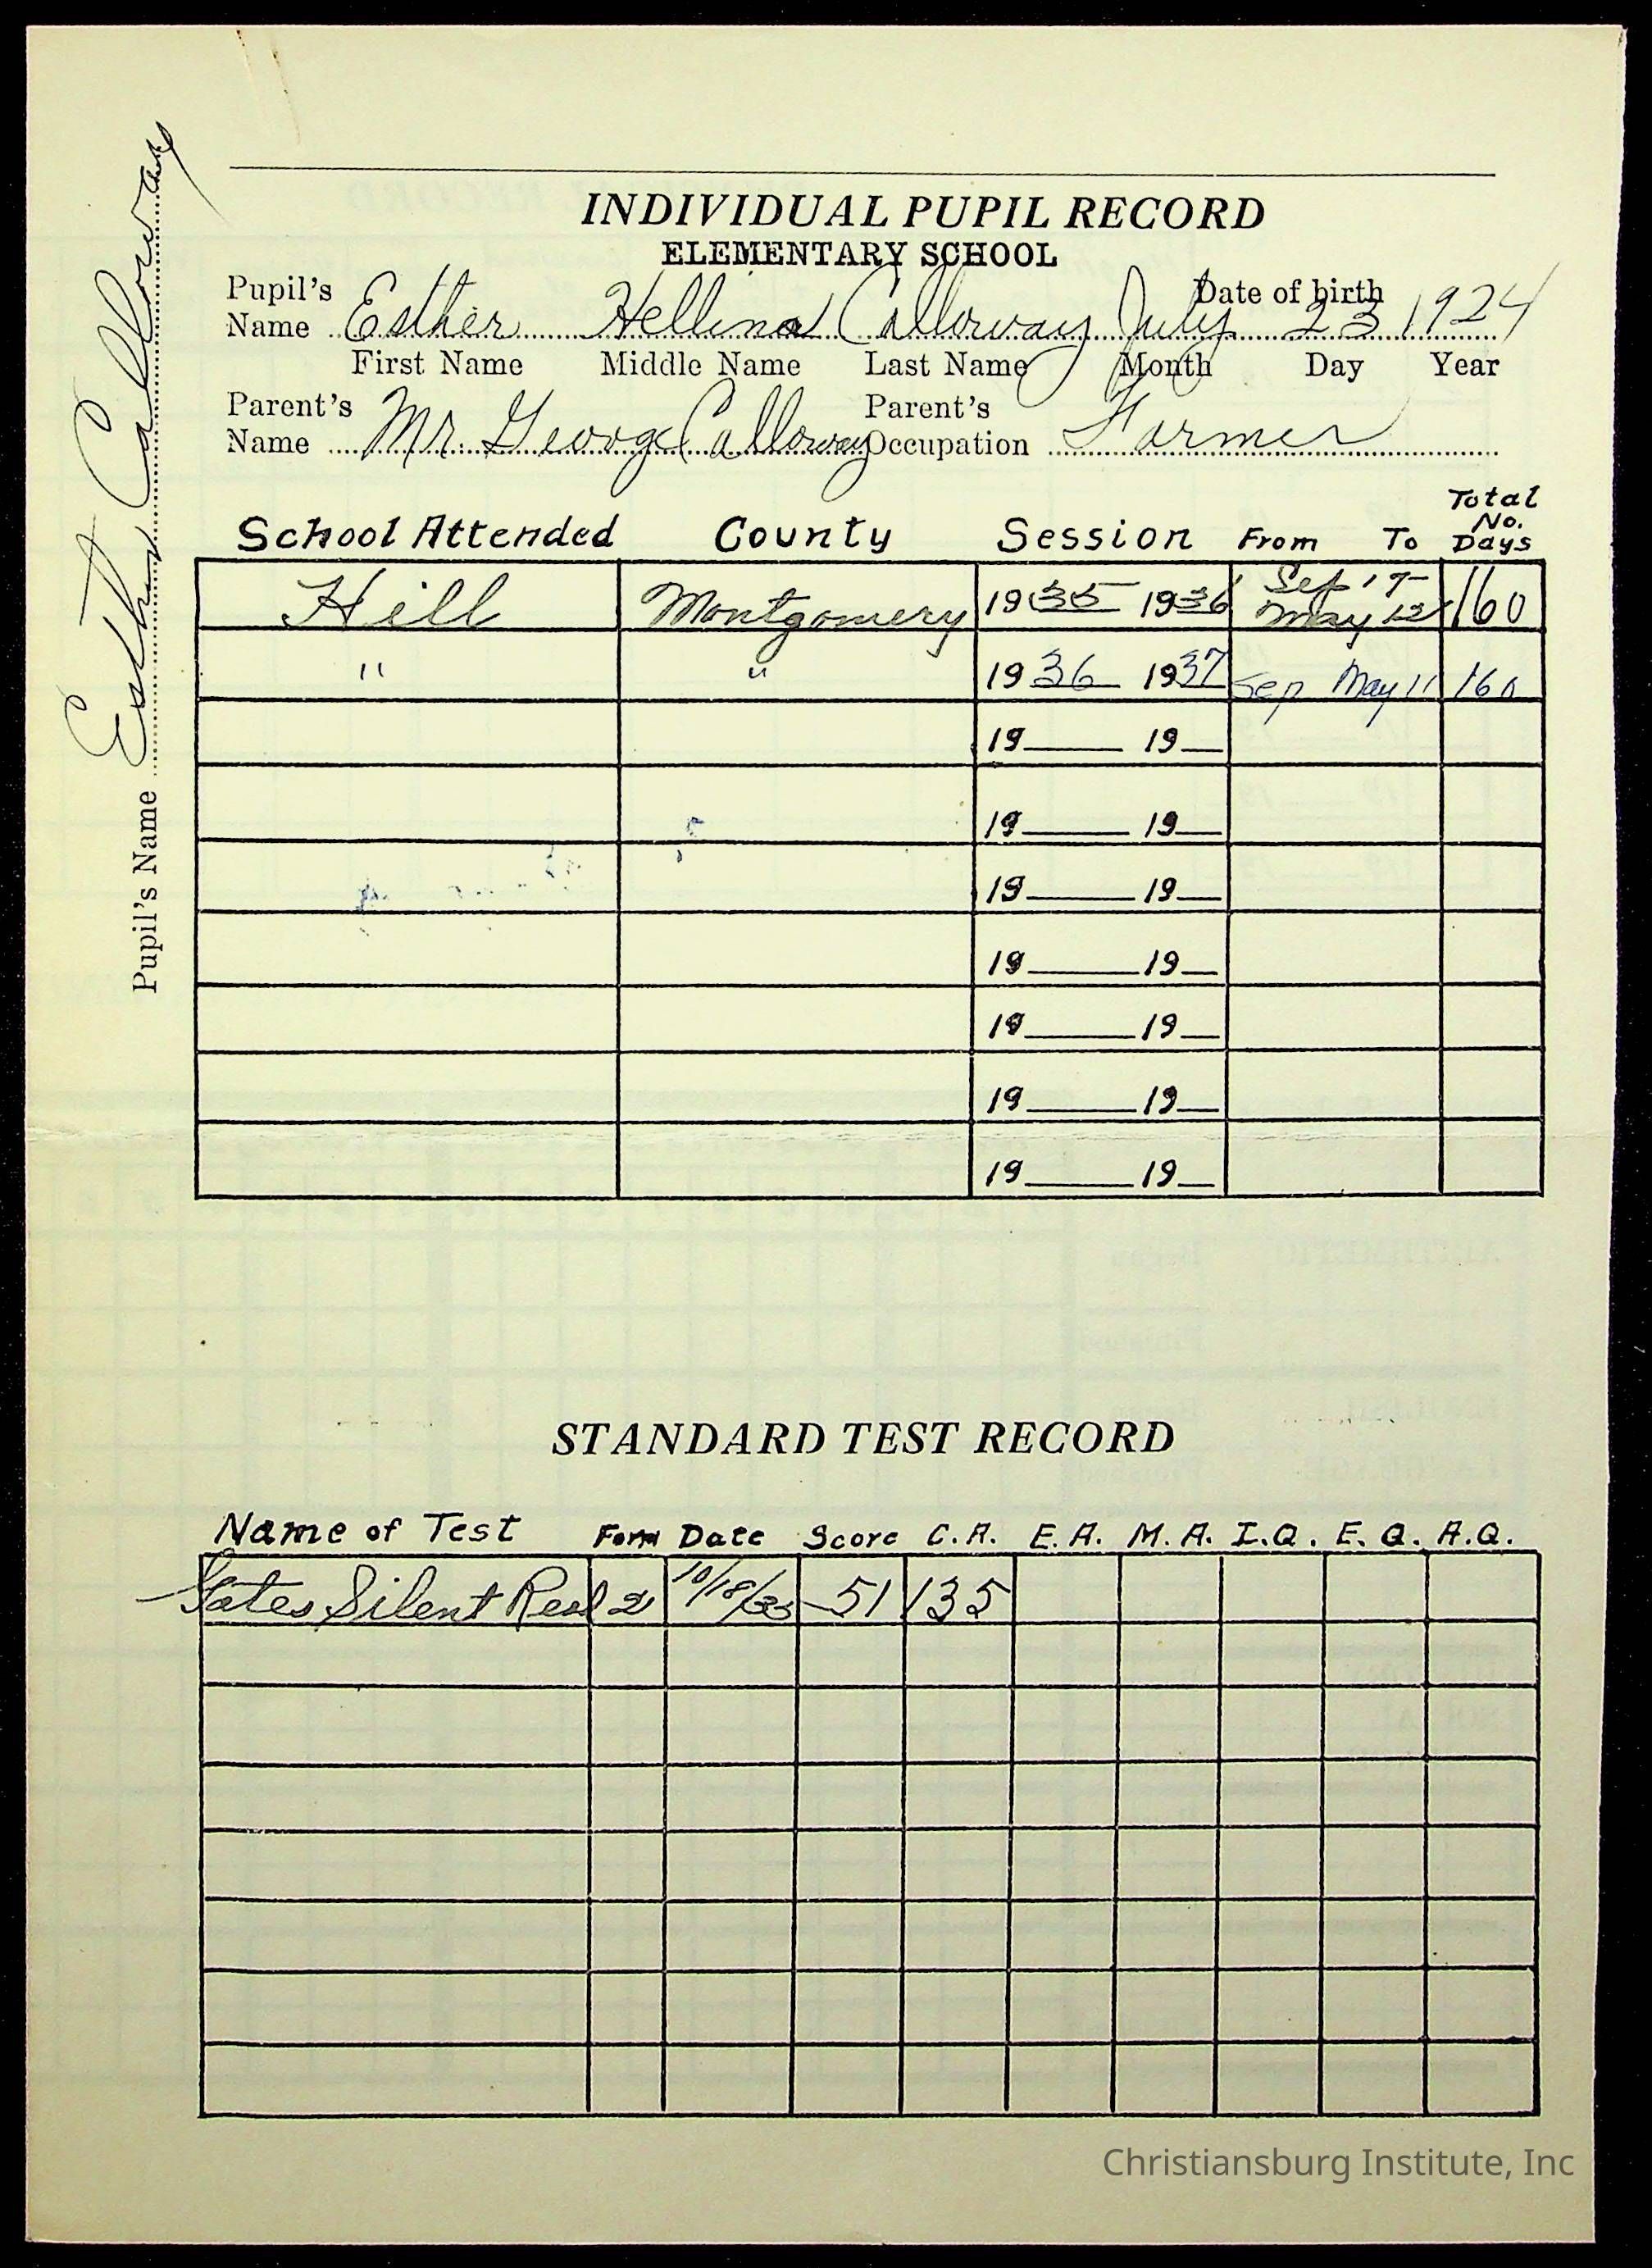 INDIVIDUAL PUPIL RECORD
ELEMENTARY SCHOOL
Pupil's Name Esther Hellena Calloway Date of birth July 23 1924
First Name Middle Name Last Name Month Day Year
Parent's Name Mr. George Calloway Parent's Occupation Farmer
Pupil's Name Esther Calloway
School Attended County Session From To Total No. Days
Hill Montgomery 1935 1936 Sep May 160
" " 1936 1937 Sep May 11 160
19 19
19 19
19 19
19 19
19 19
19 19
19 19
STANDARD TEST RECORD
Name of Test Form Date Score C.A. E.A. M.A. I.Q. E.Q. A.Q.
Gates Silent Read 2 10/18/35 51 135
Christiansburg Institute, Inc